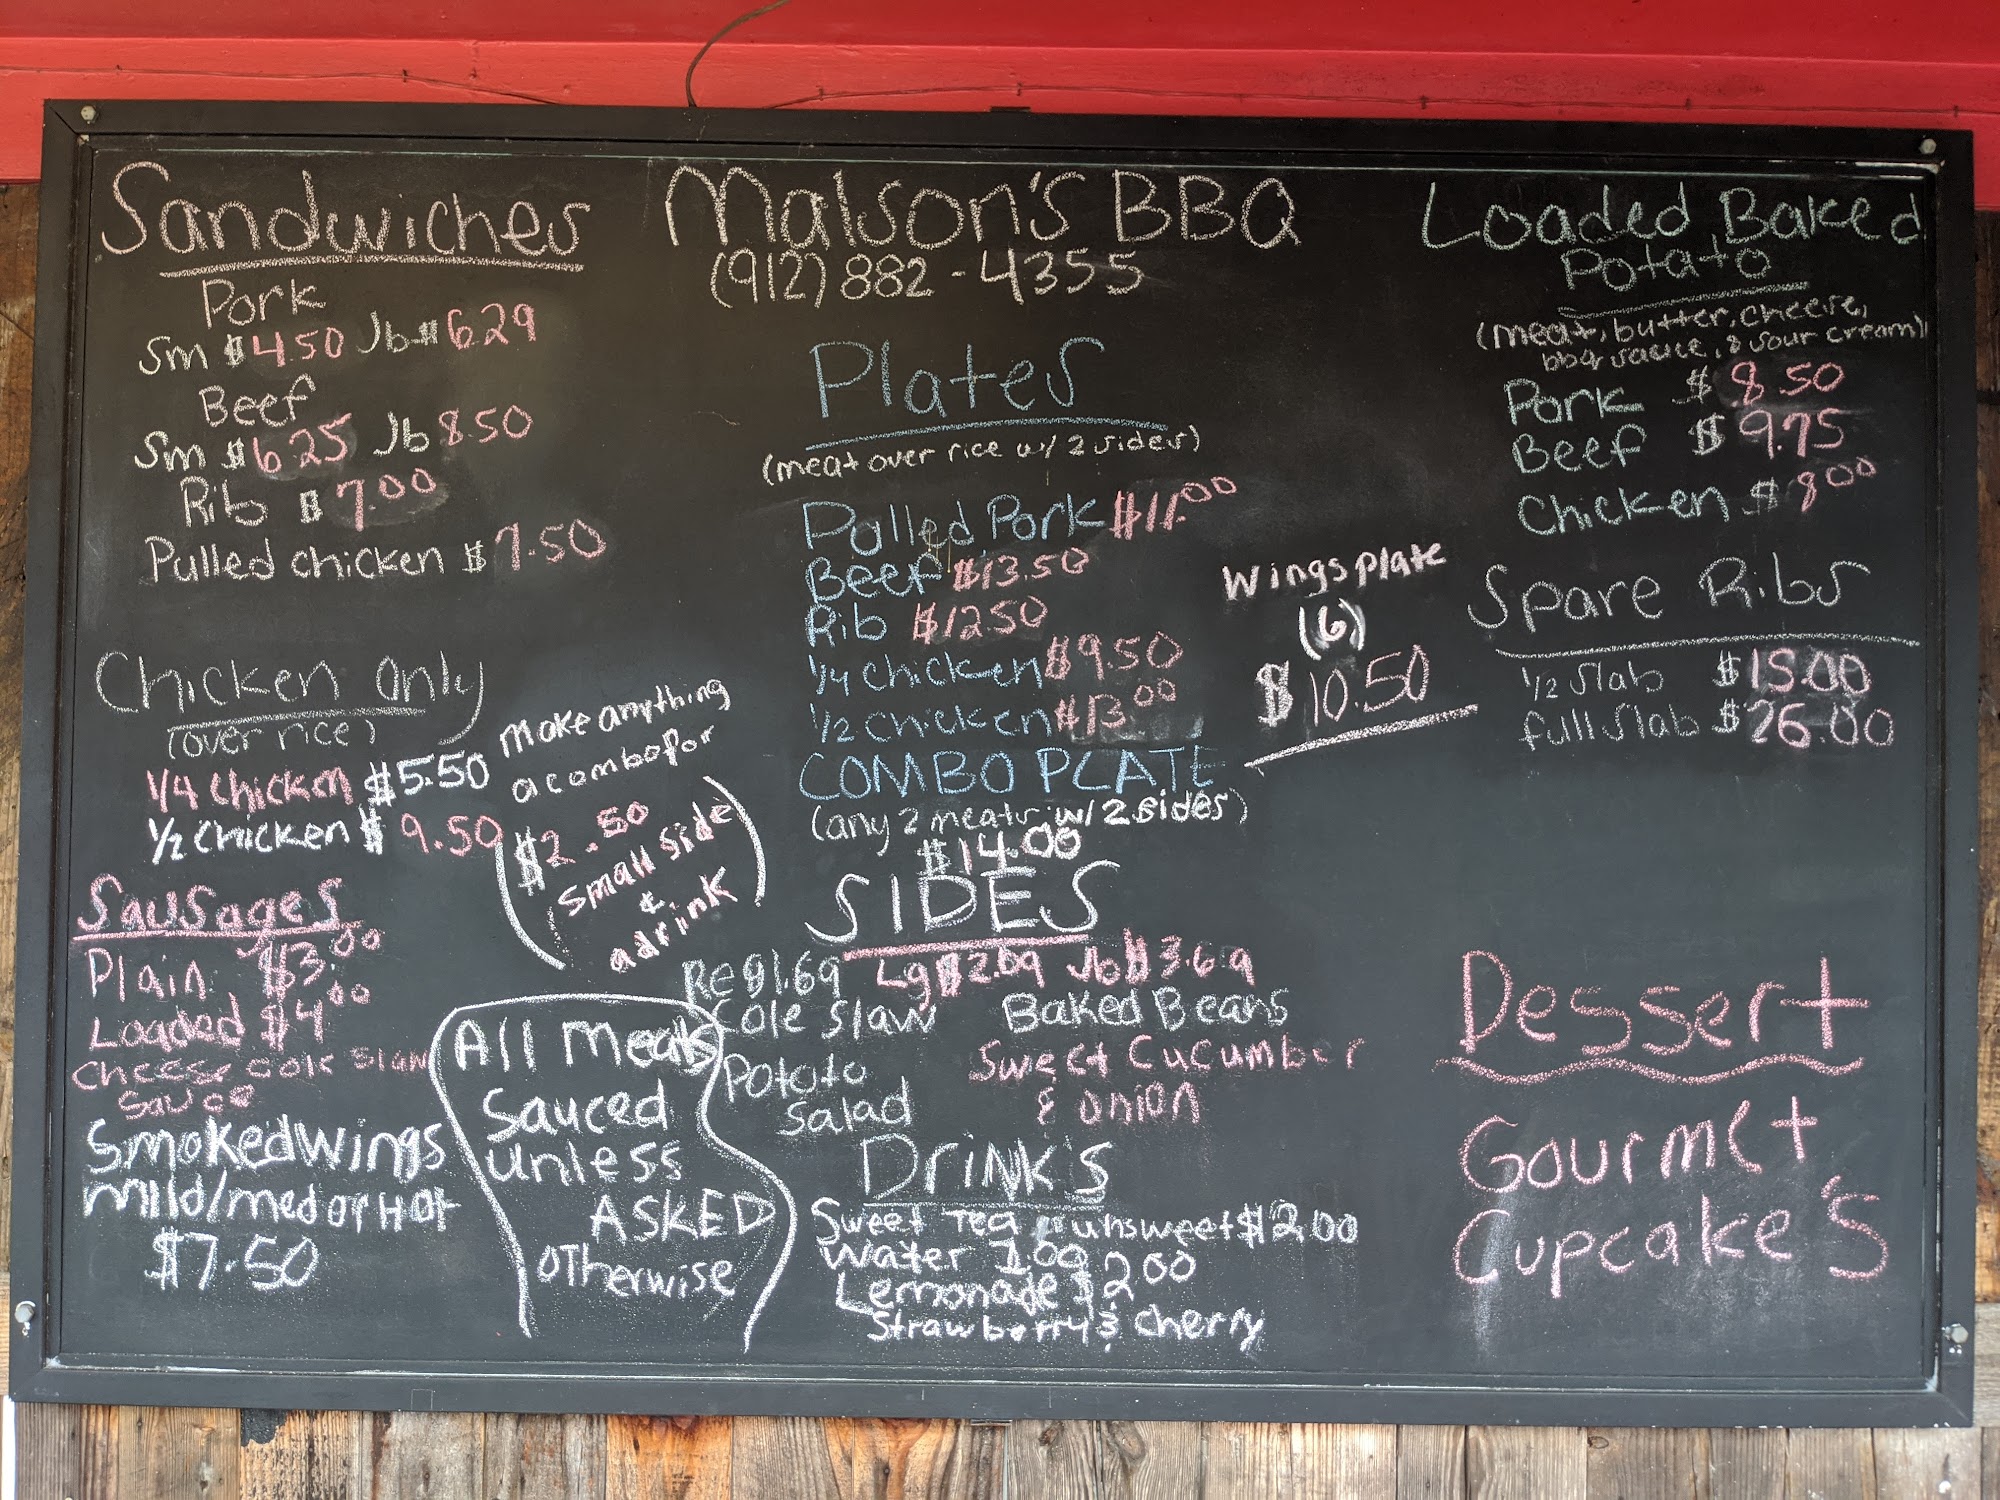 Sandwiches
Pork
Sm $4.50 Jb $6.29
Beef
Sm $6.25 Jb 8.50
Rib $7.00
Pulled chicken $7.50
Chicken Only
(over rice)
1/4 chicken $5.50
1/2 chicken $9.50
Make anything
a combo for
$2.50
Small side
&
a drink
Sausages
Plain $3.00
Loaded $4.00
Cheese cole slaw
Sauce
Smoked wings
mild/med or Hot
$7.50
All Meats
Sauced
unless
ASKED
OTherwise
Malson's BBQ
(912) 882-4355
Plates
(meat over rice w/ 2 sides)
Pulled Pork $11.00
Beef $13.50
Rib $12.50
1/4 chicken $9.50
1/2 chicken $13.00
COMBO PLATE
(any 2 meats w/ 2 sides)
$14.00
Wings plate
(6)
$10.50
SIDES
Reg 1.69 Lg $2.09 Jb $3.69
Cole Slaw Baked Beans
Potato Salad
Sweet Cucumber
& onion
Drink's
Sweet Tea unsweet $2.00
Water 1.00
Lemonade $2.00
Strawberry & Cherry
Loaded Baked
Potato
(meat, butter, cheese,
bbq sauce, & sour cream)
Pork $8.50
Beef $9.75
Chicken $8.00
Spare Ribs
1/2 slab $15.00
full slab $26.00
Dessert
Gourmet
Cupcake's